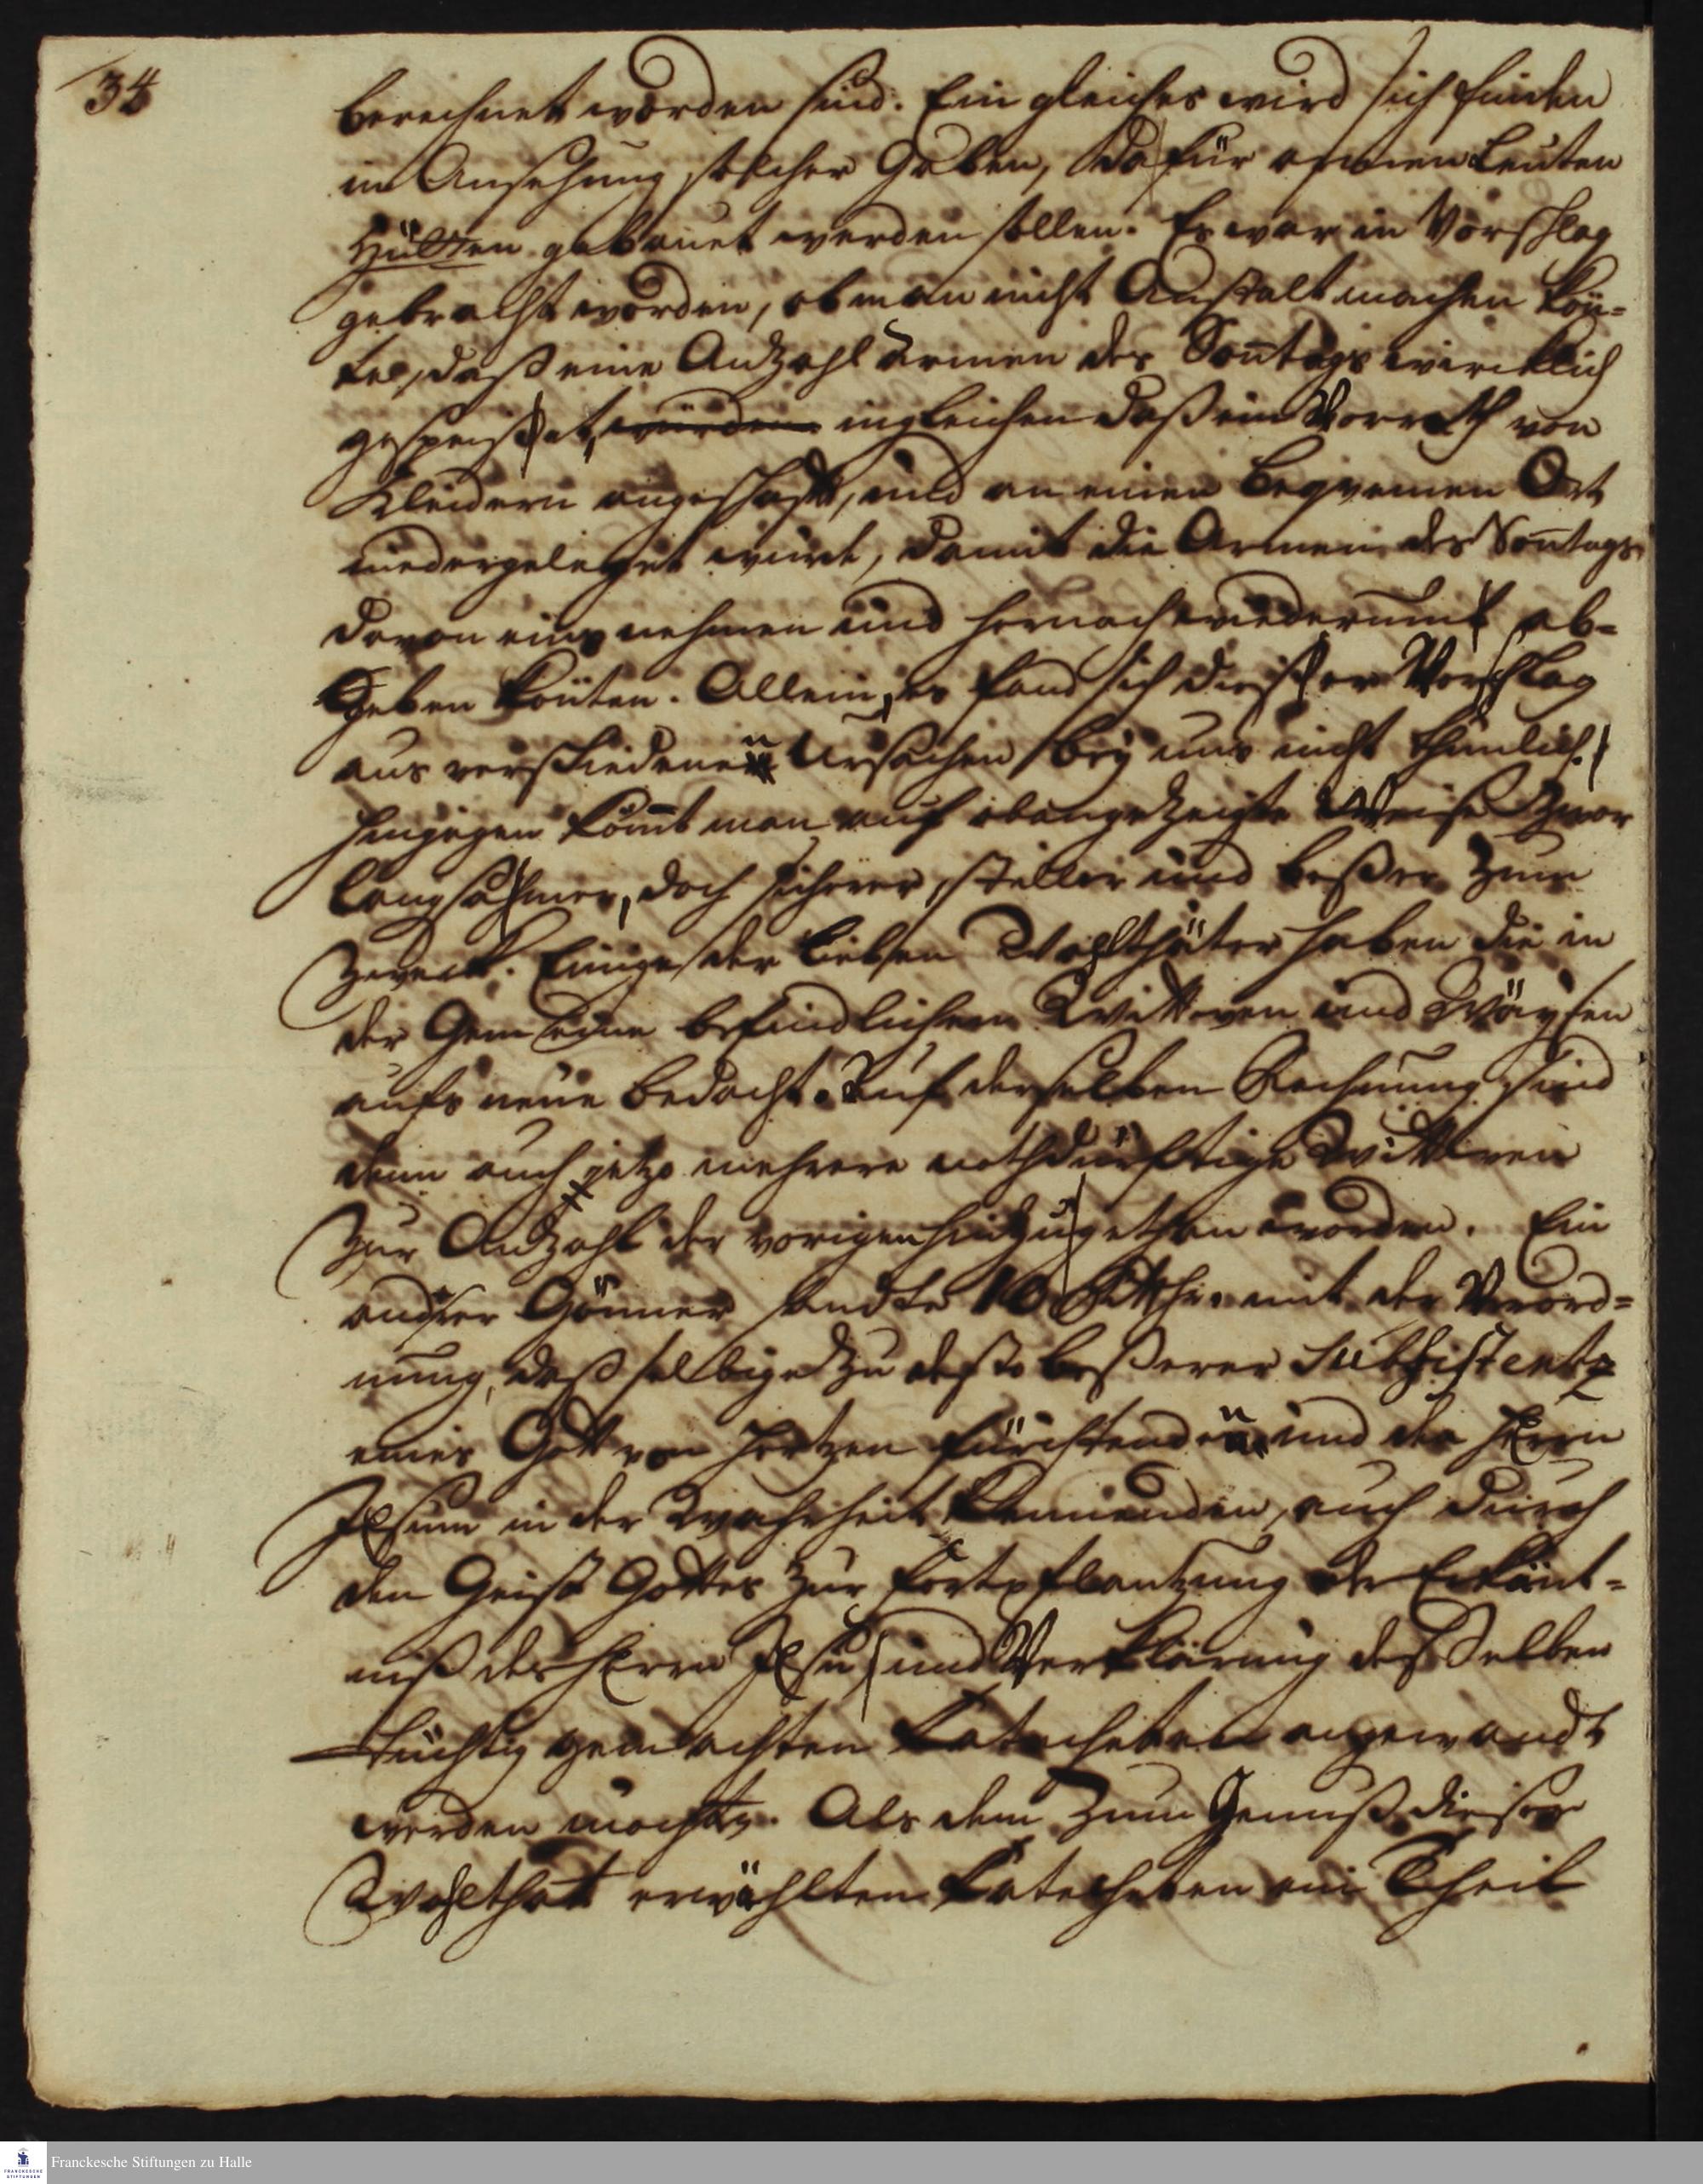 34
berechnet worden sind. Ein gleiches wird sich finden
in Ansehung solcher Gaben, dafür armen Leuten
Hütten gebauet werden sollen. Es war in Vorschlag
gebracht worden, ob man nicht Anstalt machen kön-
te, daß eine Anzahl Armen des Sontags wircklich
gespeiset, würden ingleichen daß ein Vorrath von
Kleidern angeschafft, und an einen beqvemen Ort
niedergeleget würde, damit die Armen des Sontags
davon eins nehmen und hernach wiederum ab-
geben könten. Allein, es fand sich dieser Vorschlag
aus verschiedenen Ursachen bey uns nicht thunlich.
Hingegen kömt man auf obangezeigte Weise zwar
langsamer, doch sicherer, stiller und beßer zum
Zweck. Einige der lieben Wohlthäter haben die in
der Gemeine befindlichen Wittwen und Wäysen
aufs neue bedacht. Auf derselben Rechnung sind
denn auch jetzo mehrere nothdürftige Wittwen
zur Anzahl der vorigen hinzugethan worden. Ein
andrer Gönner sandte 10 Rthlr. mit der Verord-
nung, daß selbige zu desto beßerer Subsistentz
eines Gott von Hertzen fürchtenden und den HErrn
JEsum in der Wahrheit kennenden, auch durch
den Geist Gottes zur Fortpflantzung der Erkänt-
niß des HErrn JEsu und Verklärung desselben
tüchtig gemachten Catecheten angewandt
werden möchten. Als dem zum Genuß dieser
Wohlthat erwählten Catecheten ein Theil
Franckesche Stiftungen zu Halle
FRANCKESCHE
STIFTUNGEN